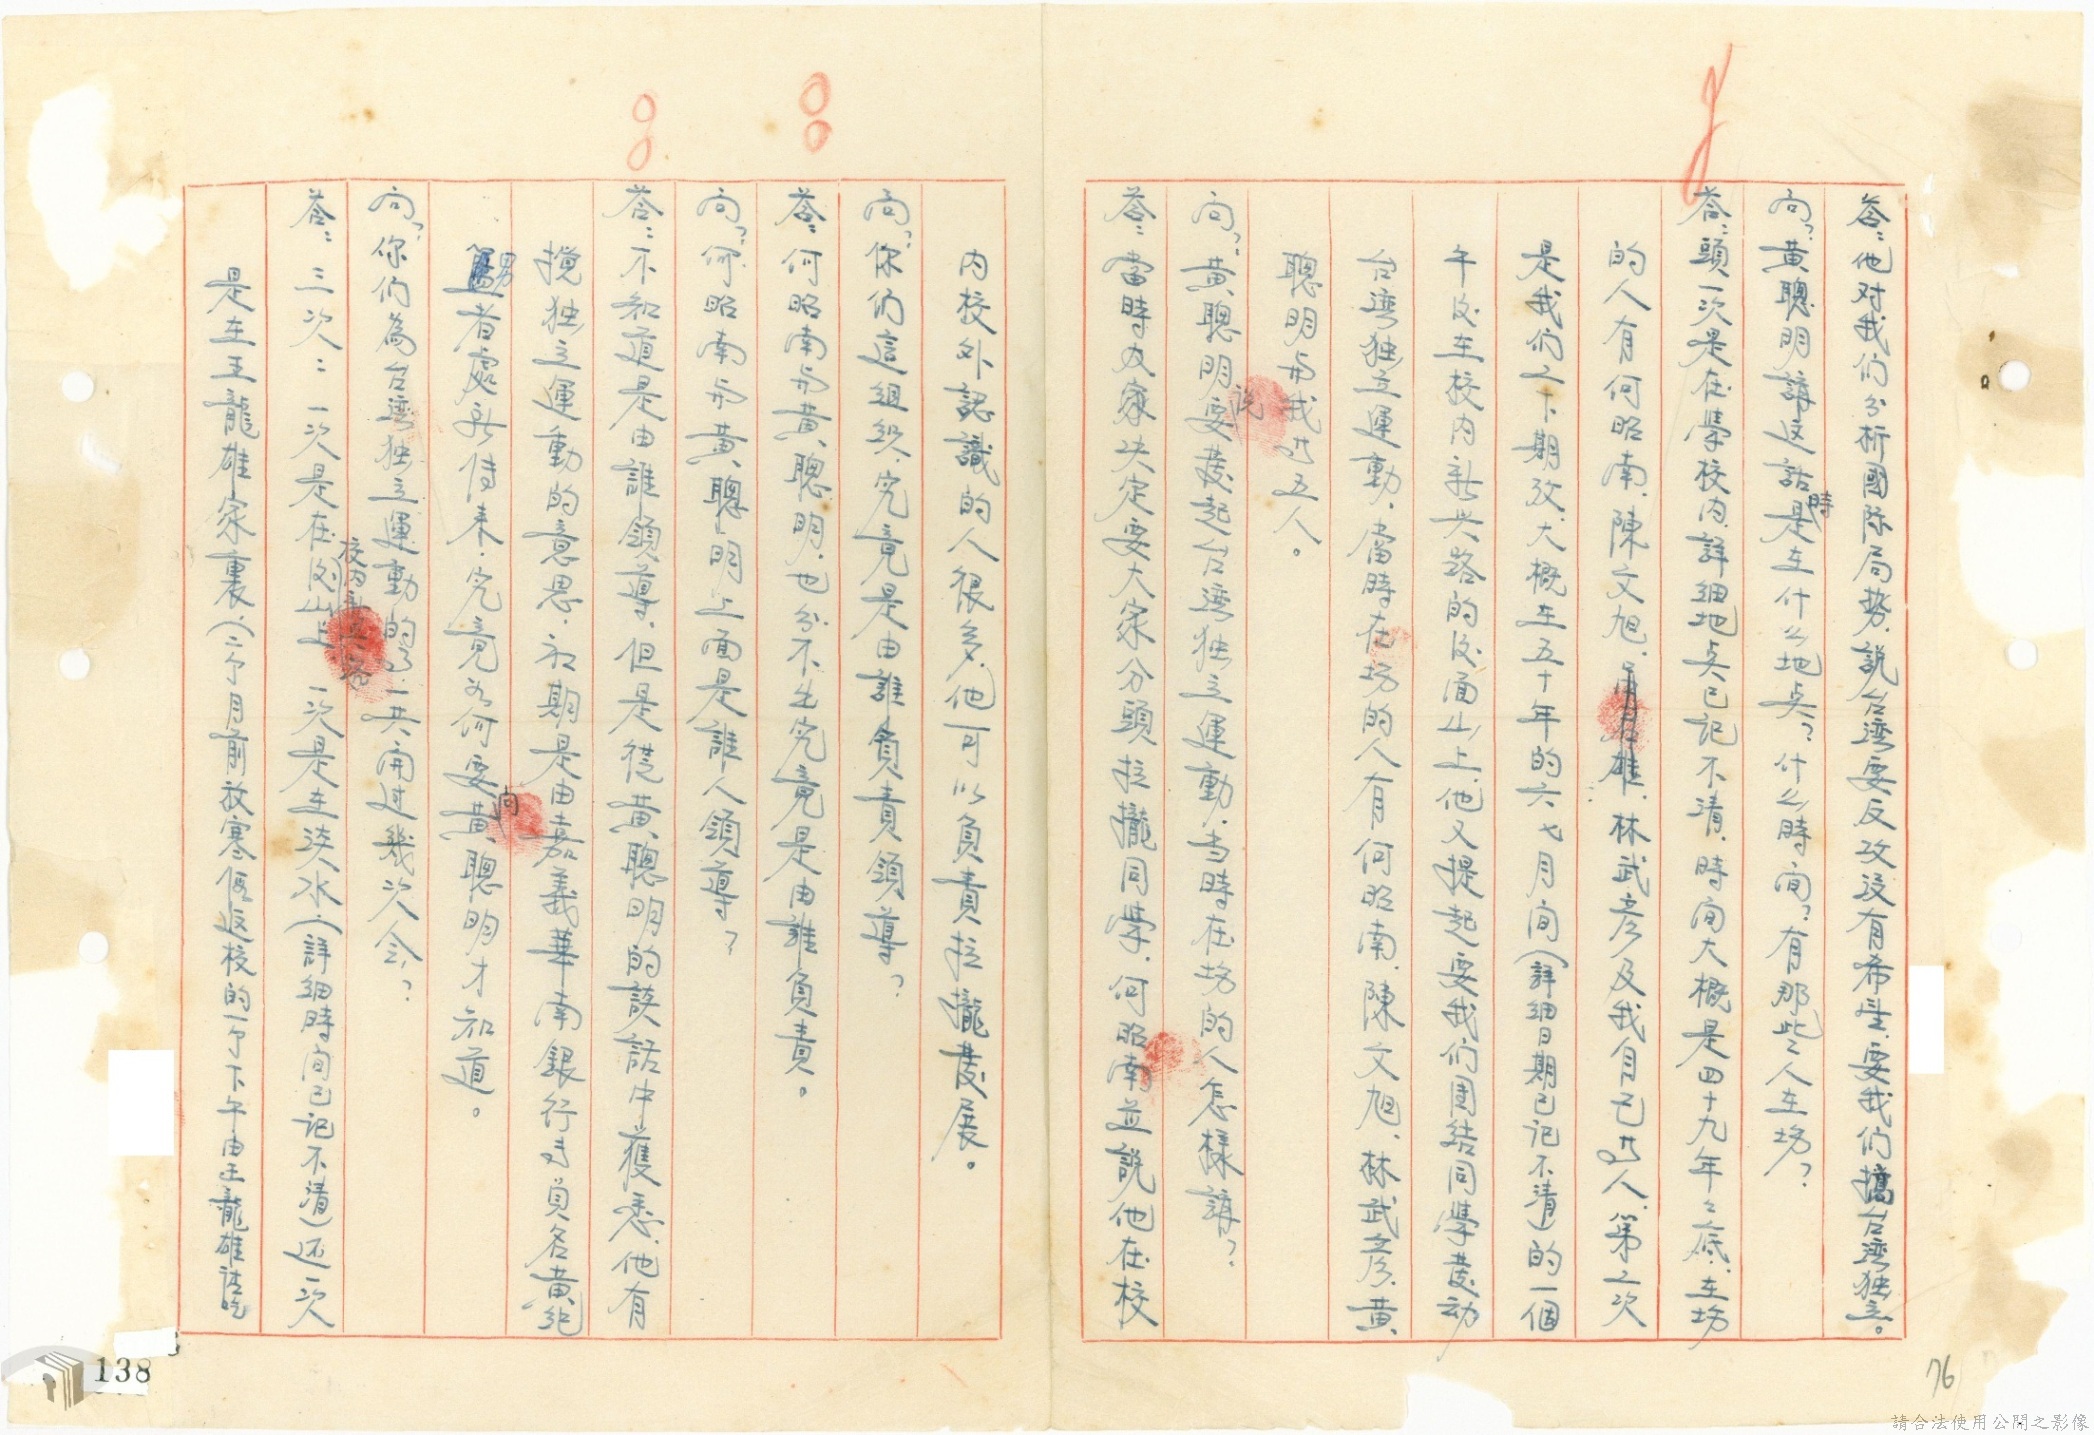 答：他对我们分析國际局势，説台湾要反攻没有希望，要我们搞台湾独立。
问？黄聰明講这話時是在什么地点？什么時间？有那些人在場？
答：頭一次是在學校内，詳細地点已記不清，時间大概是四十九年之底，在場
的人有何昭南，陳文旭，雄，林武彦及我自己共人，第二次
是我们二下期攷，大概在五十年的六七月间（詳細日期已记不清）的一個
午后在校内新兴路的后面山上，他又提起要我们团结同學發动
台湾独立運動，當時在場的人有何昭南，陳文旭，林武彦，黄
聰明与我共五人。
问？黄聰明説要發起台湾独立運動，当時在場的人怎樣講？
答：當時大家决定要大家分頭拉攏同學，何昭南並説他在校
内校外認識的人很多，他可以負責拉攏發展。
问？你们這組织，究竟是由誰負責領導？
答：何昭南与黄聰明，也分不出究竟是由誰負責。
问？何昭南与黄聰明上面是誰人領導？
答：不知道是由誰領導，但是從黄聰明的談話中獲悉，他有
搅独立運動的意思，初期是由嘉義華南銀行专員名黄纪
男者處所傳来，究竟为何要向黄聰明才知道。
问？你们為台湾独立運動的了一共開过幾次会？
答：三次：一次是在校内新兴路后山上，一次是在淡水，（詳細時间已记不清）还一次
是在王龍雄家裏，（二个月前放寒假返校的一个下午由王龍雄請吃
138
76
請合法使用公開之影像